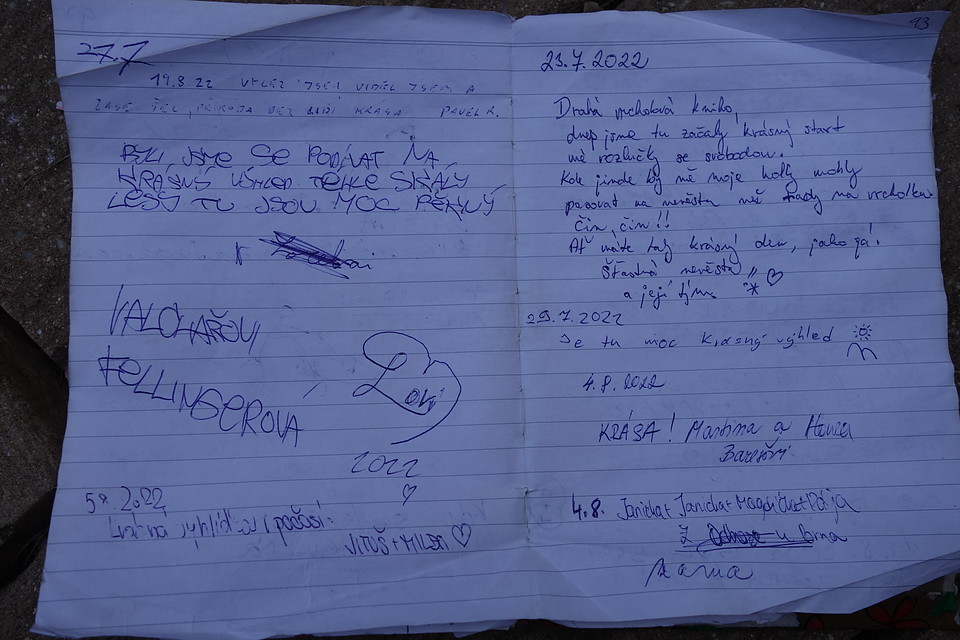 27.7
19.8 22 VYLEZ JSEM VIDĚL JSEM A
ZASE ŠEL, PŘÍRODA BEZ LIDÍ KRÁSA PAVEL R.
BYLI JSME SE PODÍVAT NA
KRÁSNÝ VÝHLED TÉHLE SKÁLY
LESY TU JSOU MOC PĚKNÝ
VALCHAŘOVI
FELLINGEROVA
Lori
2022
2022
výhled i počasí.
VITUŠ + MILDA ♡
93
23.7.2022
Drahá vrcholová kniho,
dnes jsme tu začaly krásný start
mé rozlučky se svobodou.
Kde jinde by mě moje holky mohly
pasovat na nevěstu než tady na vrcholku
Čin, čin!!
Ať máte taky krásný den, jako já!
Šťastná nevěsta
a její tým ♡
29.7.2022
Je tu moc krásný výhled
4.8.2022
KRÁSA! Martina a Honza
Barešovi
4.8. Janička+Janička+
z u Brna